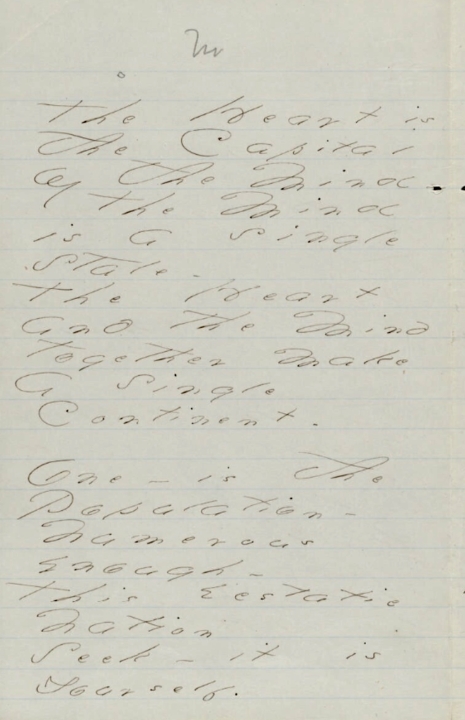 The Heart is
The Capital
of the Mind -
The Mind
is a single
State -
The Heart
and the Mind
together make
a single
Continent.
One - is the
Population -
Numerous
Enough -
This Ecstatic
Nation
Seek - it is
Yourself.